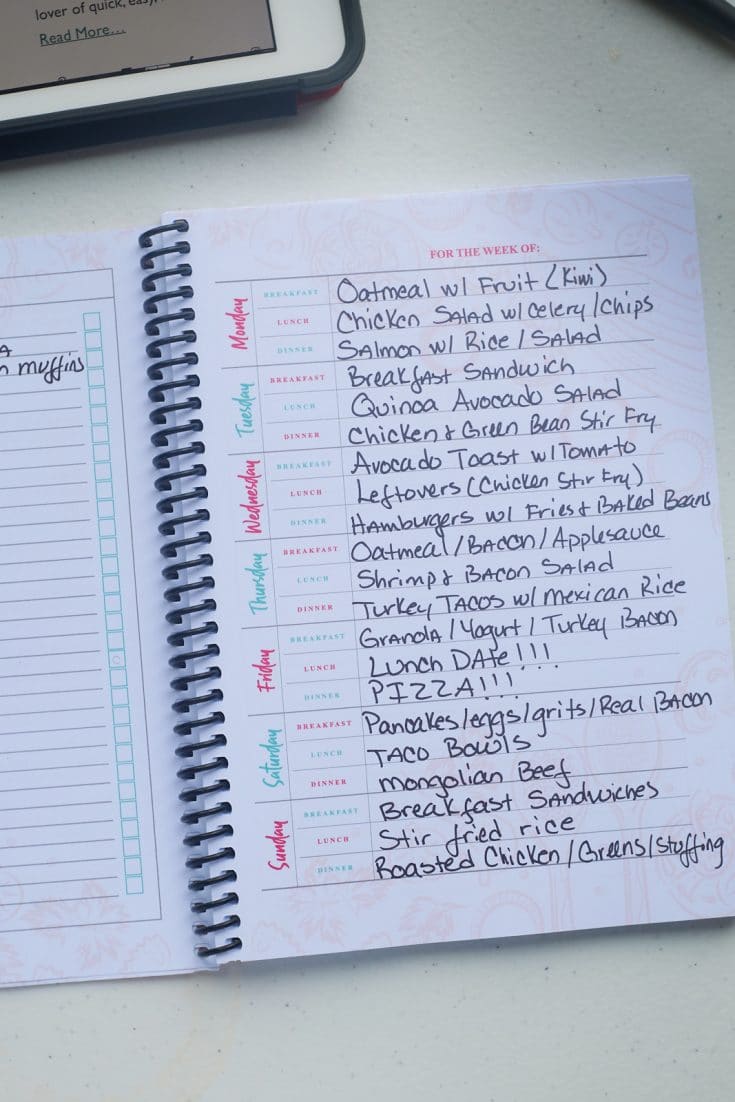 lover of quick, easy,
Read More...
A
n muffins
FOR THE WEEK OF:
Monday
BREAKFAST Oatmeal w/ Fruit (Kiwi)
LUNCH Chicken SALAD w/ celery / chips
DINNER SALmon w/ Rice / SALAD
Tuesday
BREAKFAST BreakfAST SANDwich
LUNCH Quinoa Avocado SALAD
DINNER Chicken & Green Bean Stir Fry
Wednesday
BREAKFAST Avocado Toast w/ Tomato
LUNCH Leftovers (Chicken Stir Fry)
DINNER HAmburgers w/ Fries & BAked Beans
Thursday
BREAKFAST Oatmeal / BACON / Applesauce
LUNCH Shrimp & BACON SALAD
DINNER Turkey TACOS w/ mexican Rice
Friday
BREAKFAST GRANOLA / Yogurt / Turkey BACON
LUNCH Lunch DAte!!!
DINNER PIZZA!!!
Saturday
BREAKFAST Pancakes / eggs / grits / Real BACON
LUNCH TACO Bowls
DINNER mongolian Beef
Sunday
BREAKFAST Breakfast SANDwiches
LUNCH Stir fried rice
DINNER Roasted Chicken / Greens / stuffing